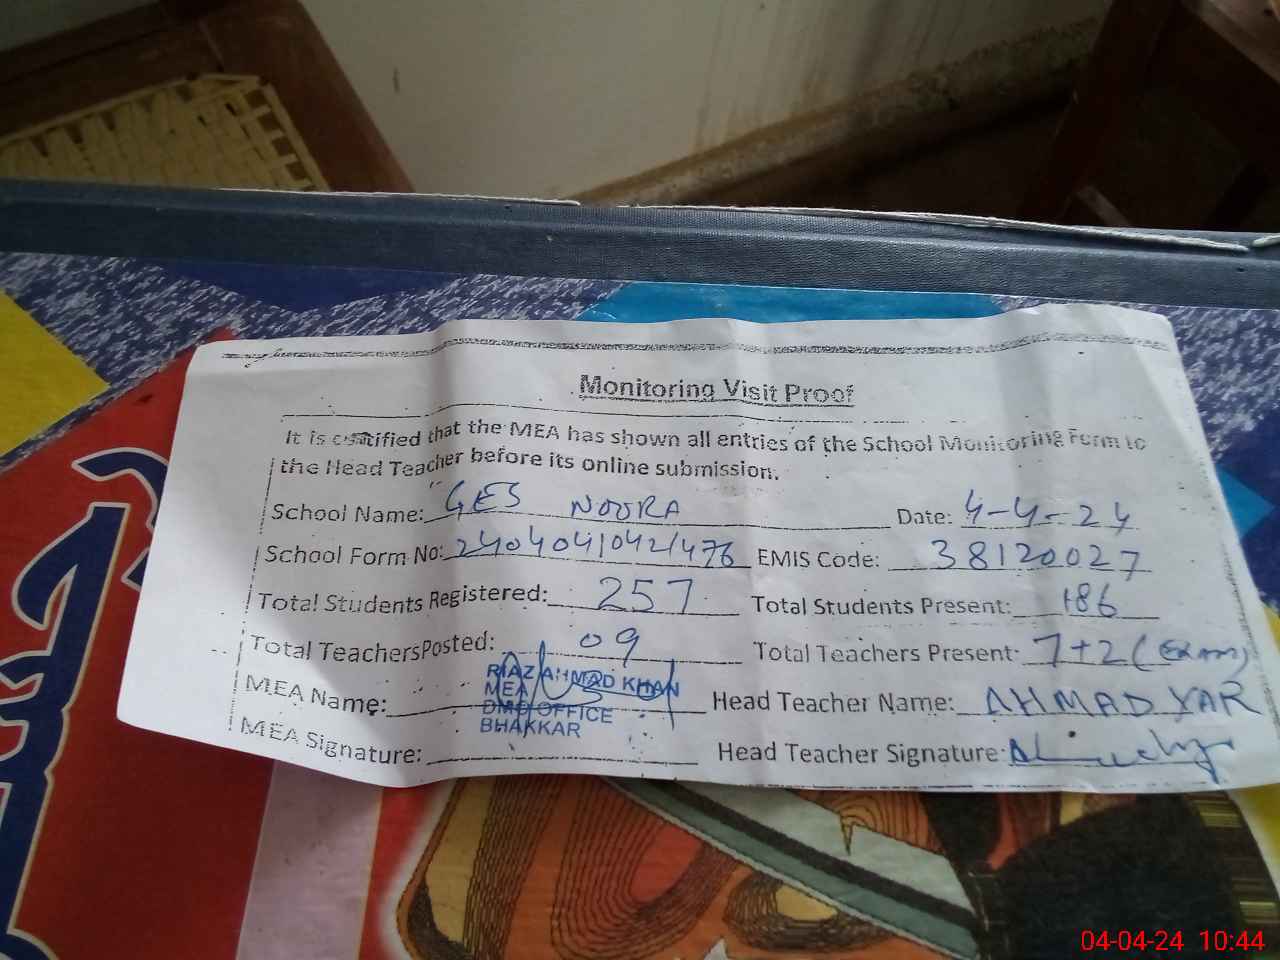 Monitoring Visit Proof
It is certified that the MEA has shown all entries of the School Monitoring Form to
the Head Teacher before its online submission.
School Name: GES NOORA Date: 4-4-24
School Form No: 24040410421476 EMIS Code: 38120027
Total Students Registered: 257 Total Students Present: 186
Total Teachers Posted: 09 Total Teachers Present: 7+2 (Exam)
MEA Name: RIAZ AHMAD KHAN Head Teacher Name: AHMAD YAR
MEA
DMO OFFICE
BHAKKAR
MEA Signature: Head Teacher Signature:
04-04-24 10:44